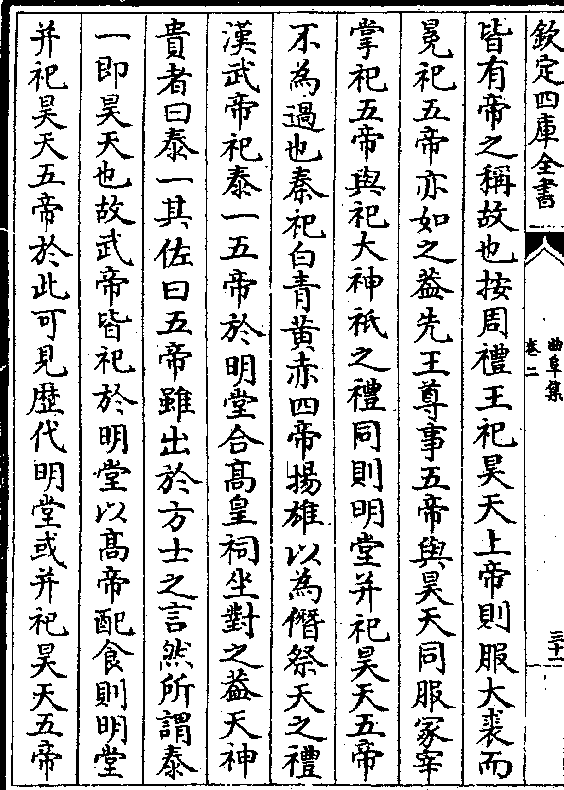 欽定四庫全書
曲阜集
卷二
三十二
皆有帝之稱故也按周禮王祀昊天上帝則服大裘而
冕祀五帝亦如之葢先王尊事五帝與昊天同服冢宰
掌祀五帝與祀大神祇之禮同則明堂并祀昊天五帝
不為過也秦祀白青黄赤四帝揚雄以為僭祭天之禮
漢武帝祀泰一五帝於明堂合髙皇祠坐對之葢天神
貴者曰泰一其佐曰五帝雖出於方士之言然所謂泰
一即昊天也故武帝皆祀於明堂以髙帝配食則明堂
并祀昊天五帝於此可見歴代明堂或并祀昊天五帝